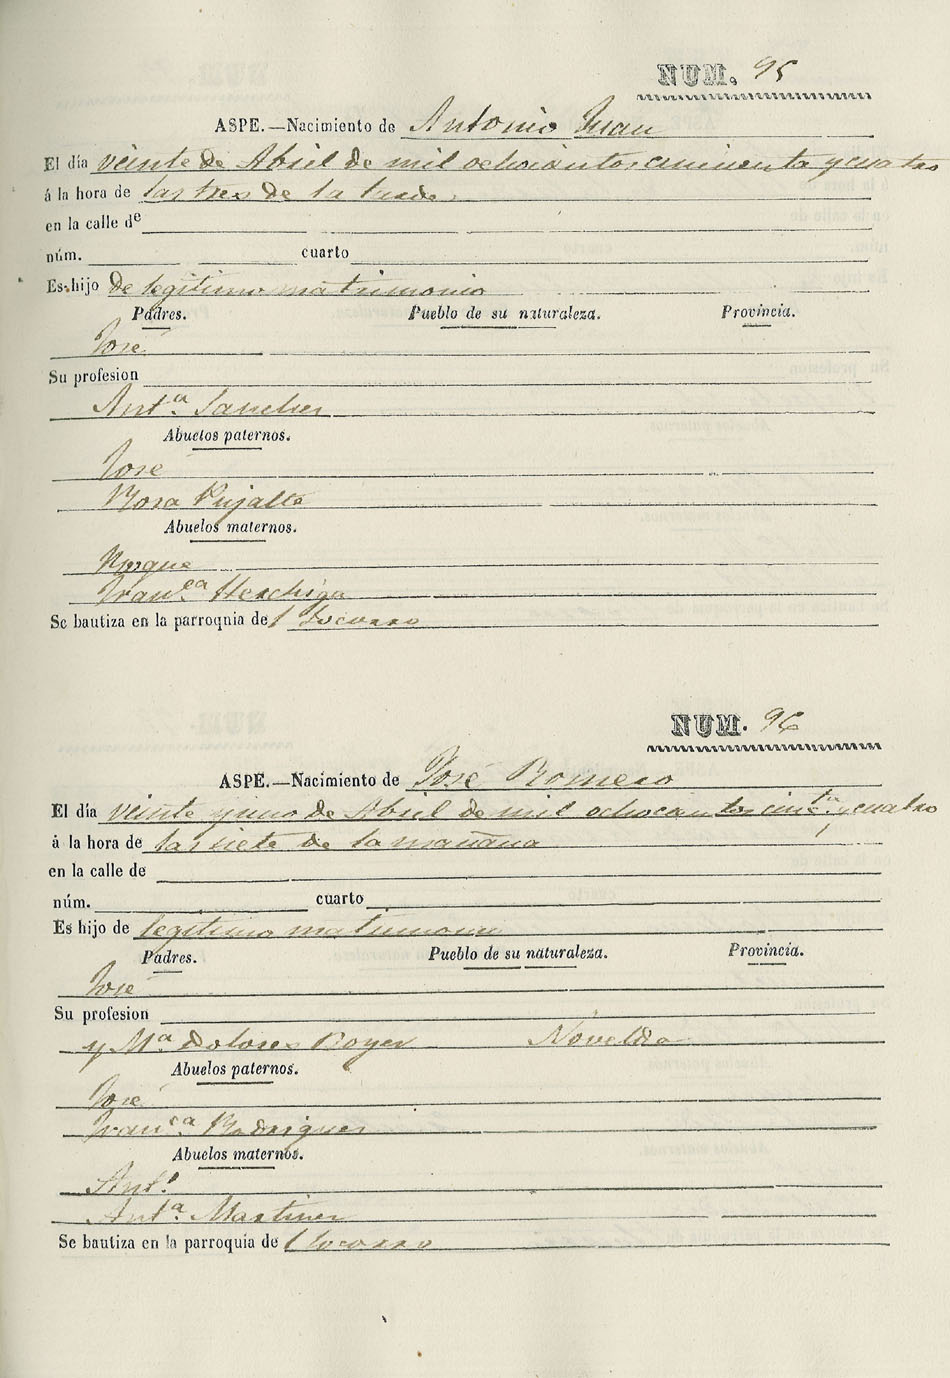 NUM. 95
ASPE.—Nacimiento de Antonio Juan
El día veinte de Abril de mil ochocientos cincuenta y cuatro
á la hora de las tres de la tarde
en la calle de
núm. cuarto
Es hijo de legitimo matrimonio
Padres. Pueblo de su naturaleza. Provincia.
José
Su profesion
Antª Sanchez
Abuelos paternos.
José
Rosa Pujalte
Abuelos maternos.
Roque
Franca
Se bautiza en la parroquia del Socorro
NUM. 96
ASPE.—Nacimiento de José Romero
El día veinte y uno de Abril de mil ochocientos cincta y cuatro
á la hora de las siete de la mañana
en la calle de
núm. cuarto
Es hijo de legitimo matrimonio
Padres. Pueblo de su naturaleza. Provincia.
José
Su profesion
y Mª Dolores Boyer Novelda
Abuelos paternos.
José
Franca Rodriguez
Abuelos maternos.
Antº
Antª Martinez
Se bautiza en la parroquia de l Socorro